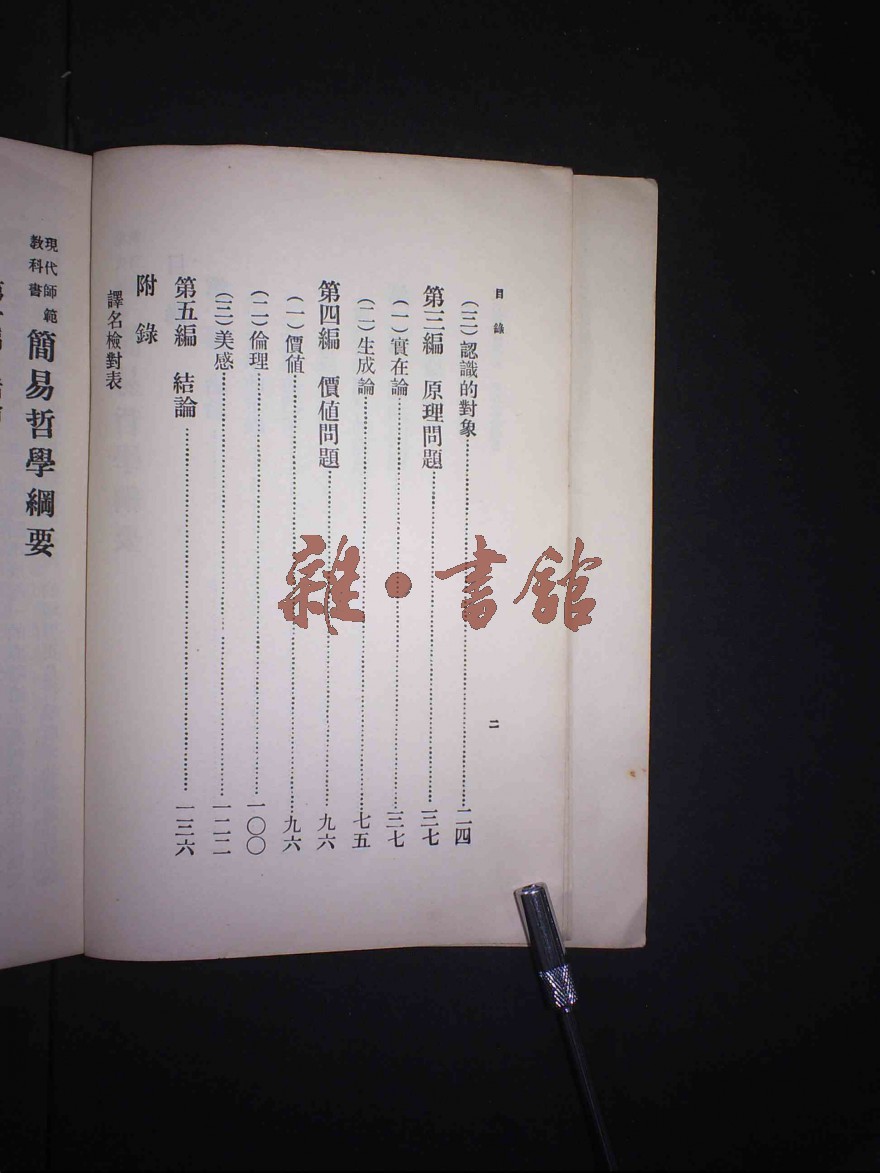 目錄
二
(三)認識的對象……二四
第三編 原理問題……三七
(一)實在論……三七
(二)生成論……七五
第四編 價值問題……九六
(一)價值……九六
(二)倫理……一〇〇
(三)美感……一二二
第五編 結論……一三六
附錄
譯名檢對表
現代師範
教科書
簡易哲學綱要
雜·書館